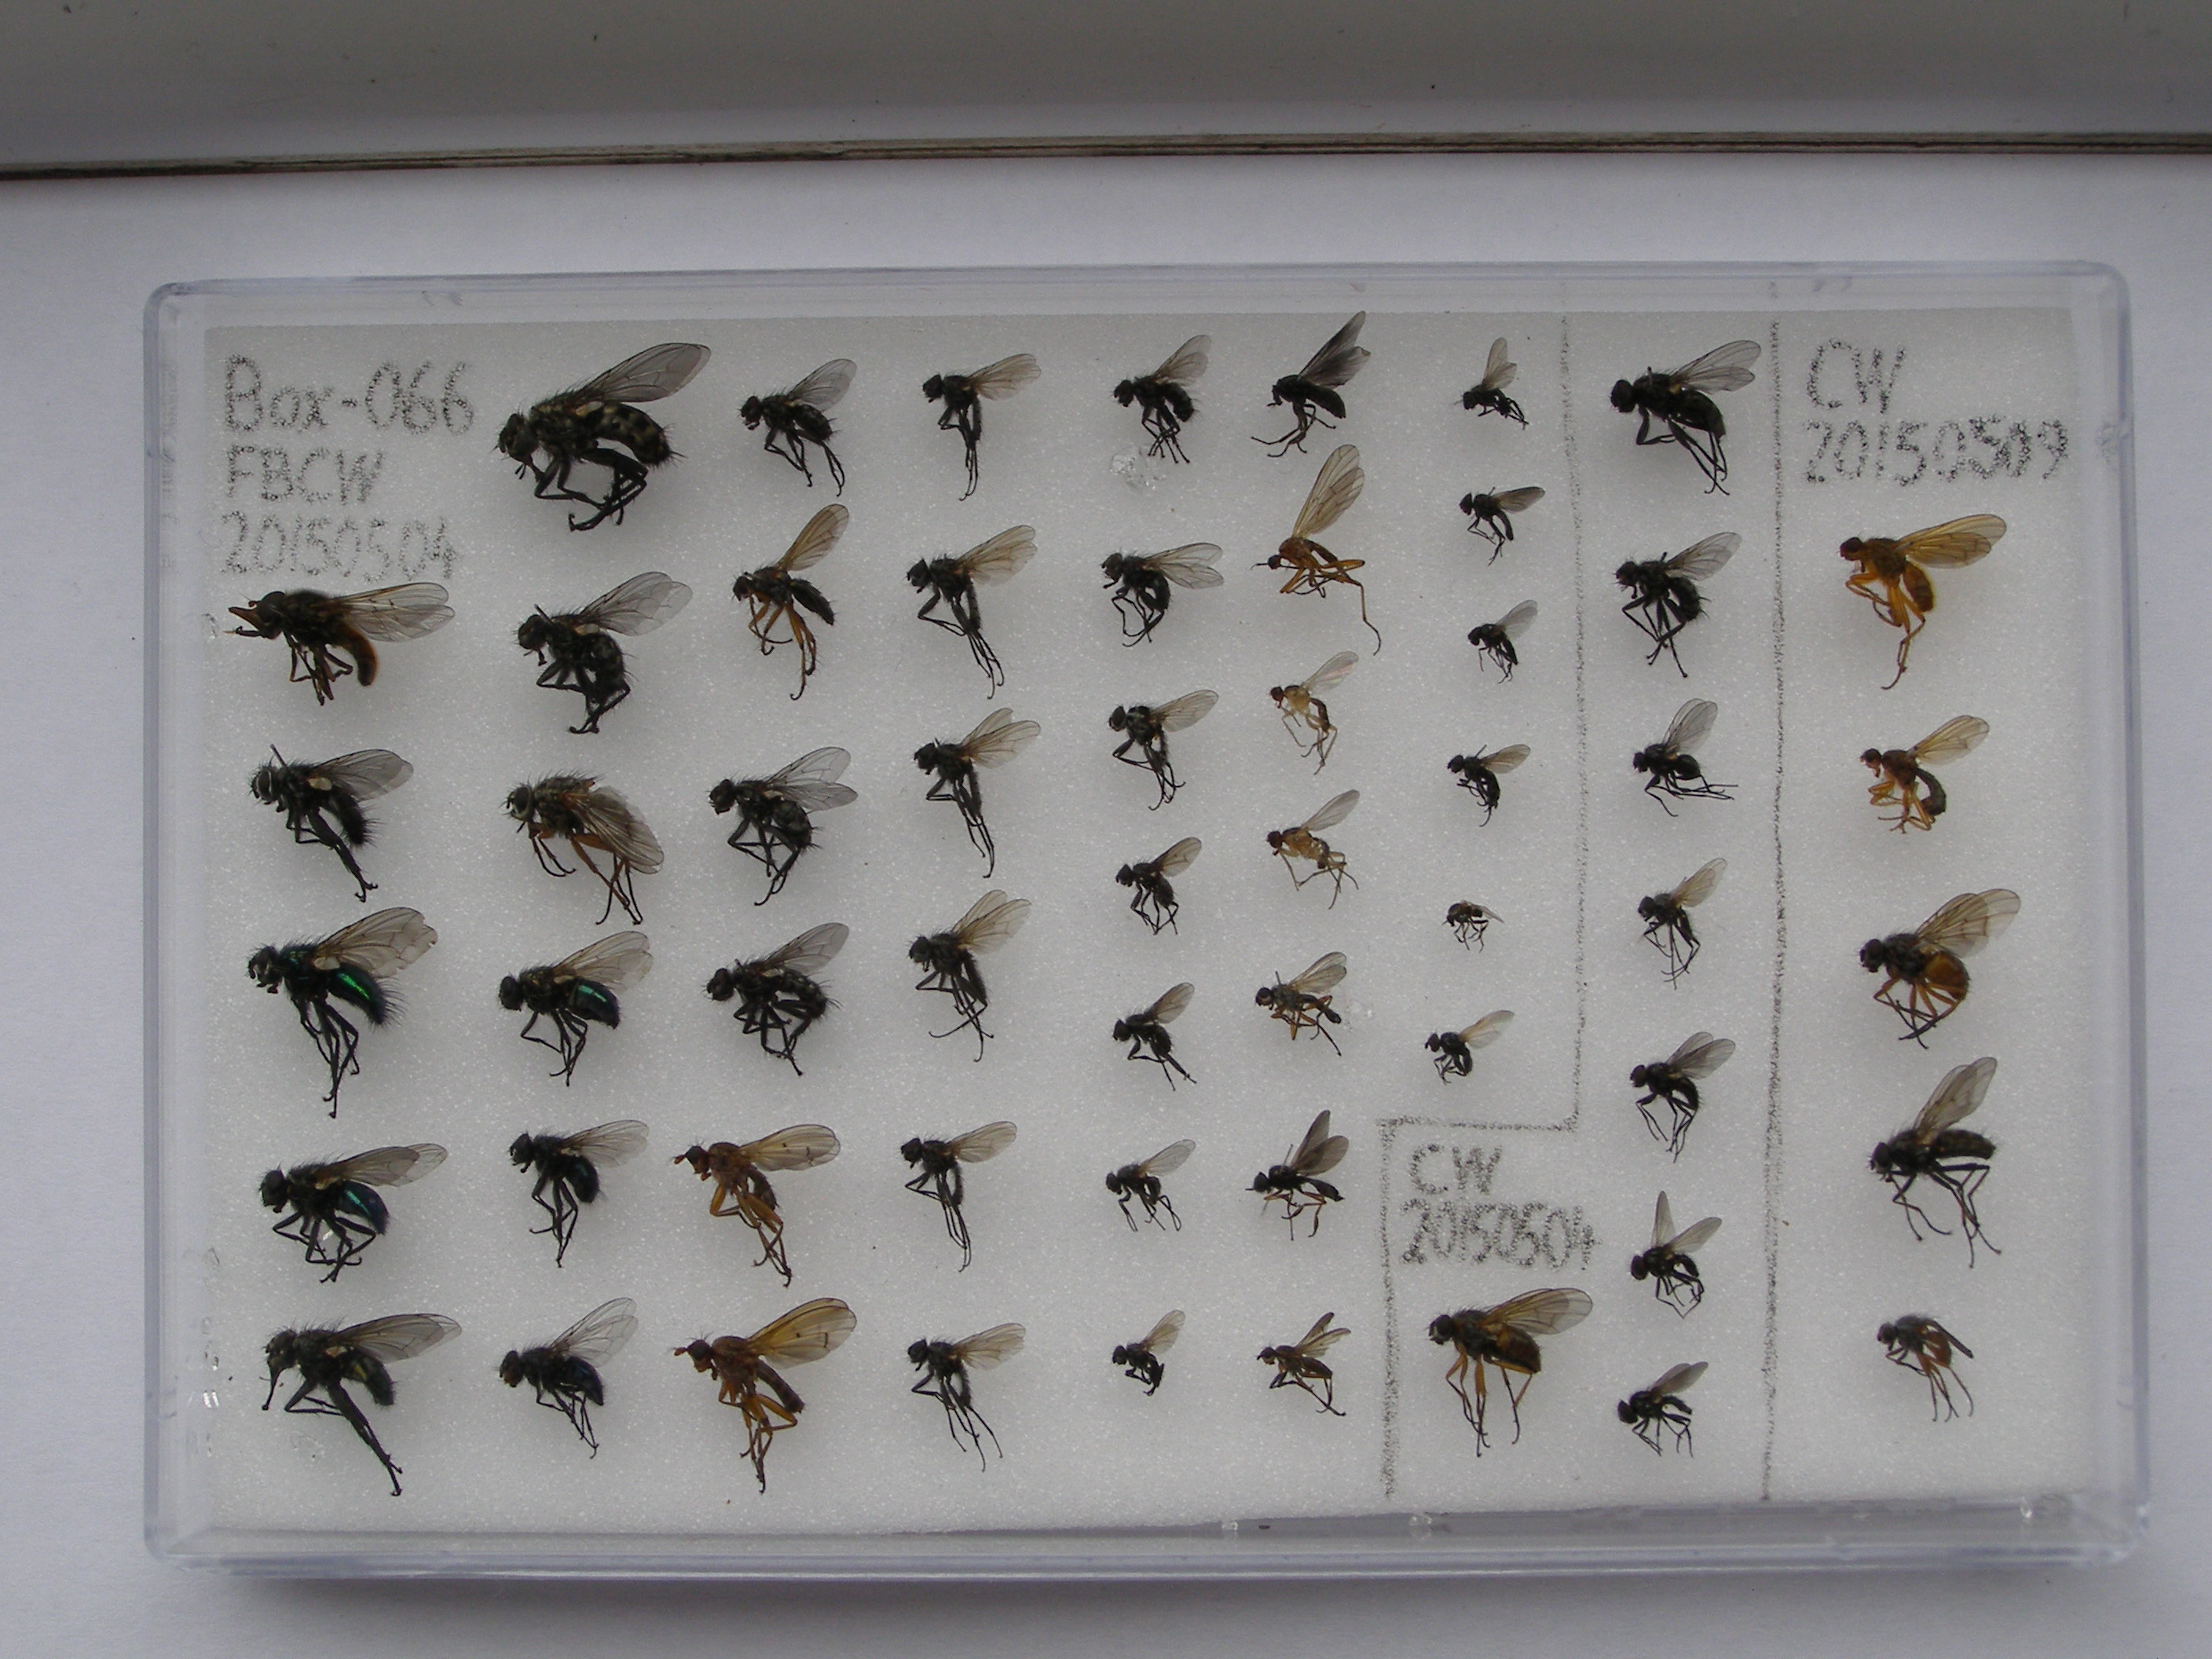 Box-066
FBCW
20150504
CW
20150504
CW
20150509